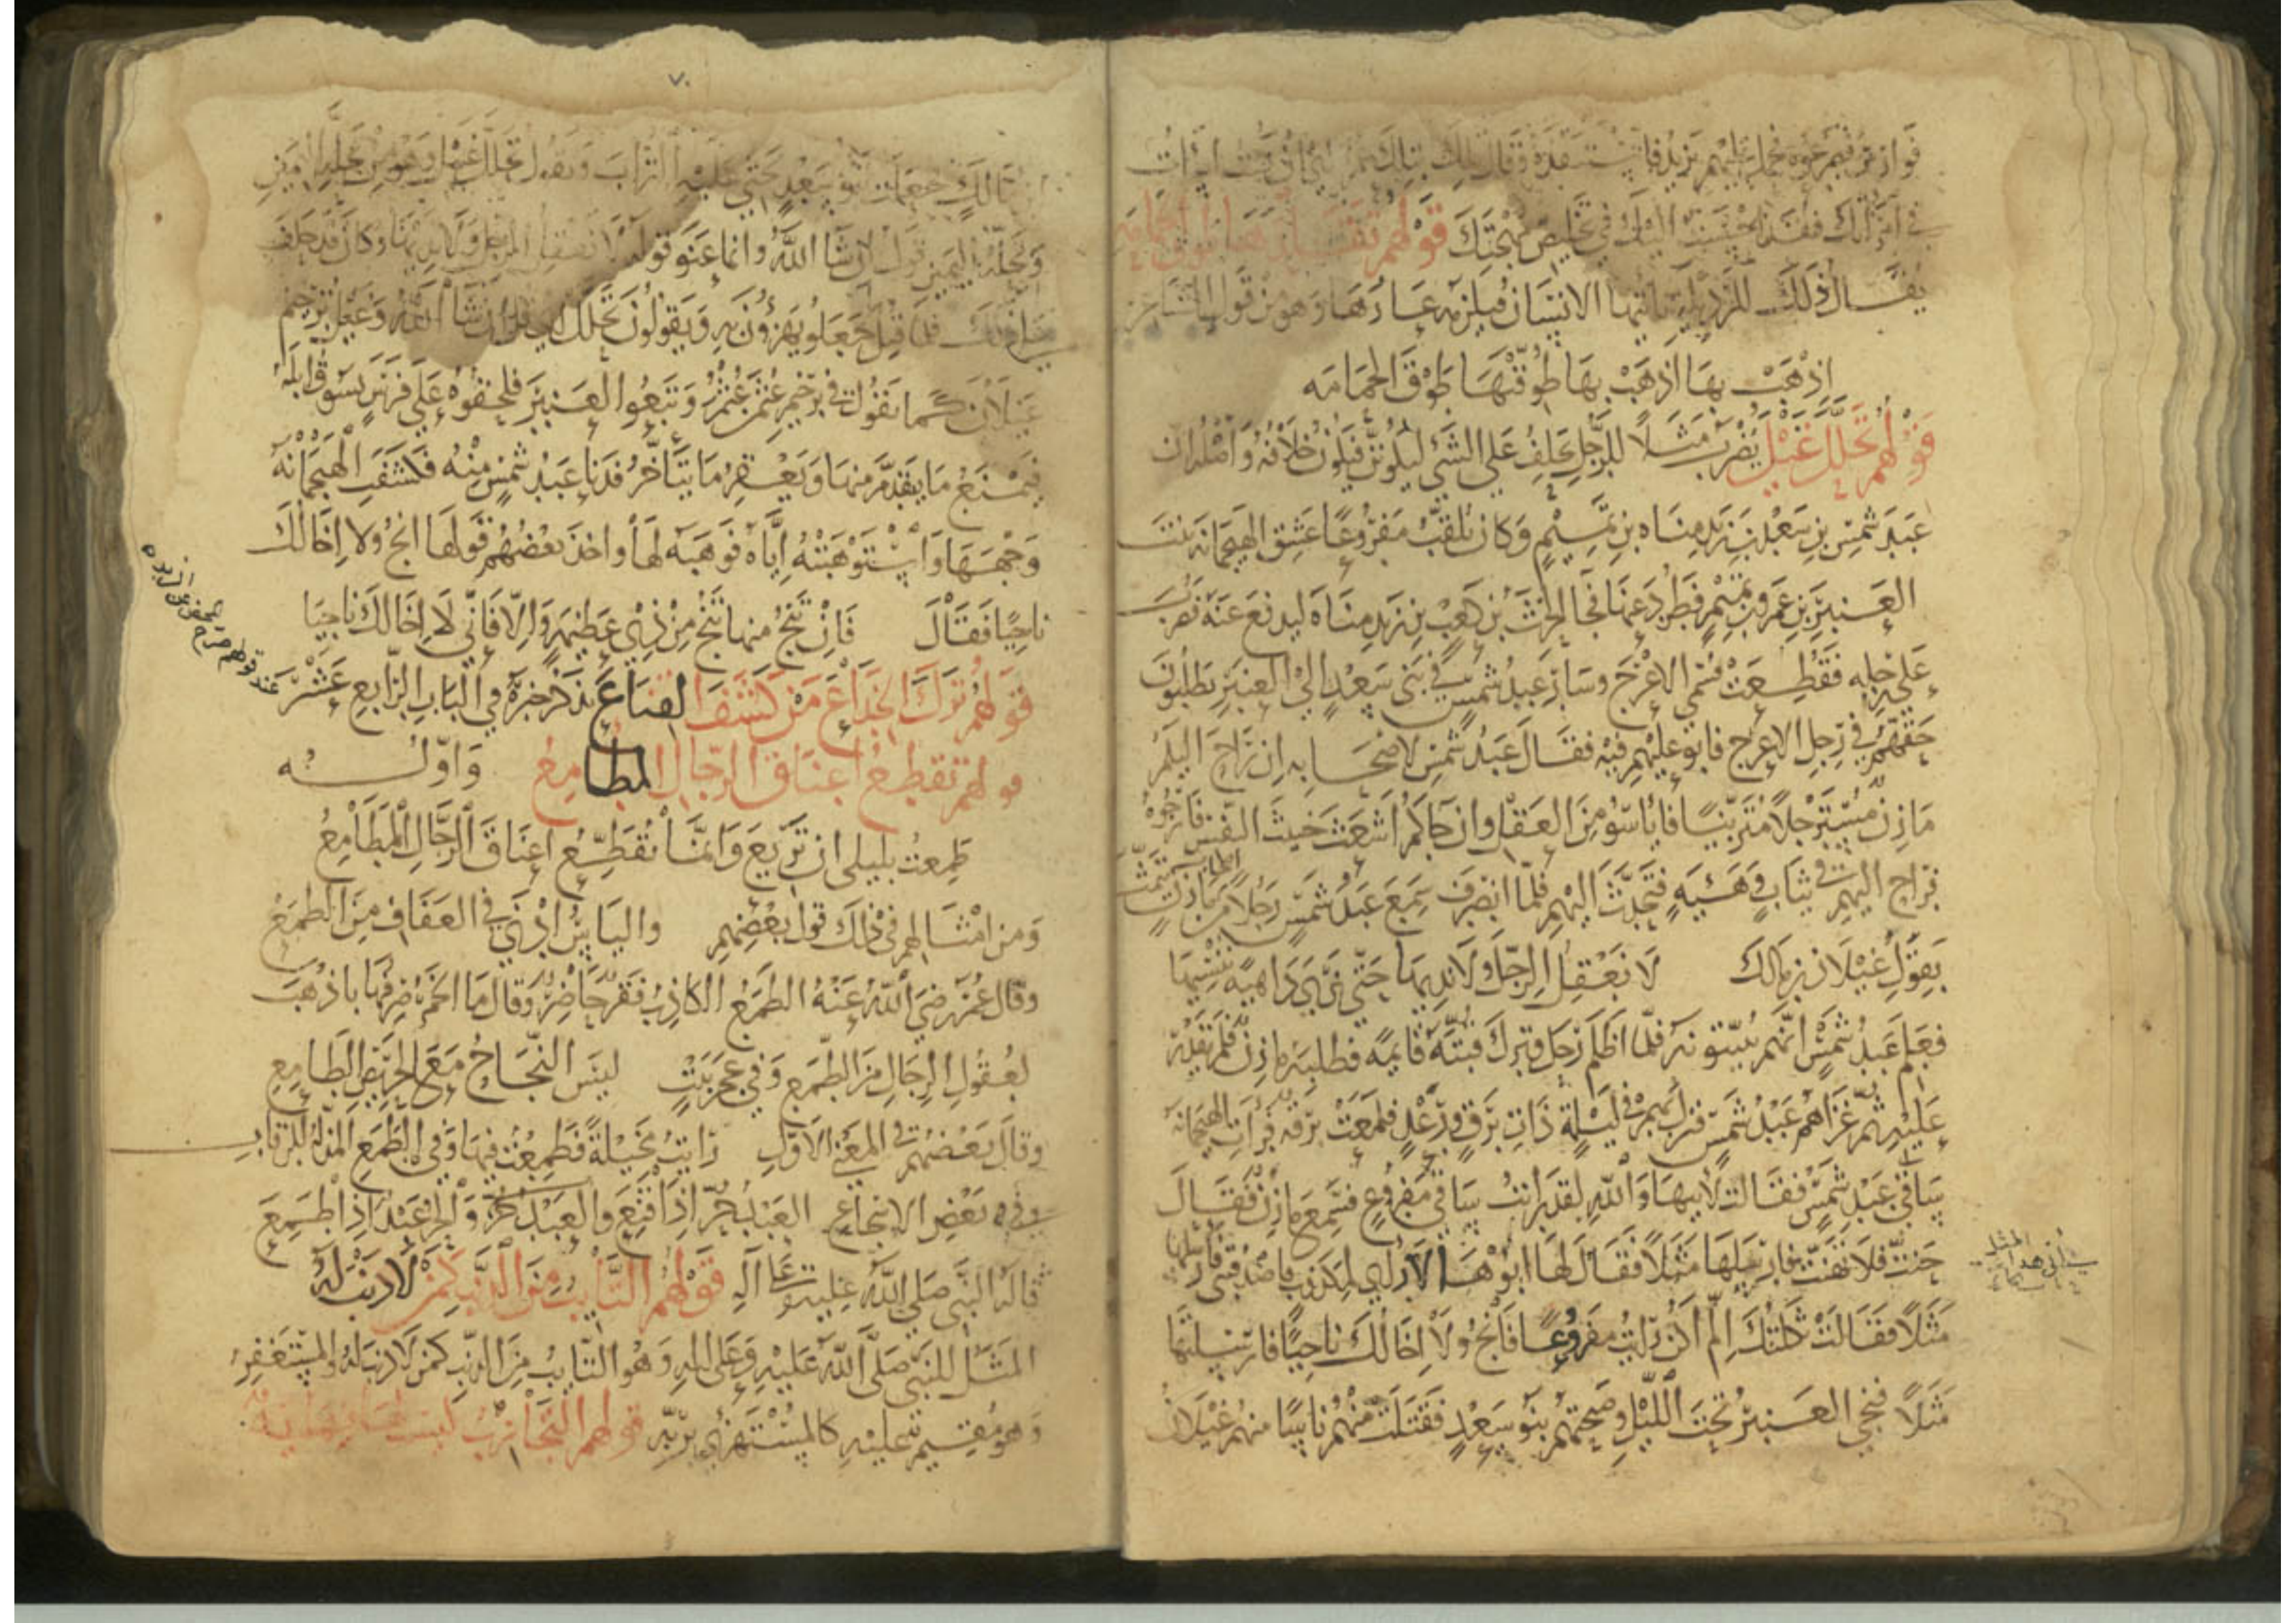 في امرأتك فقد احسنت اليك في تخليص مهجتك قولهم تقلدها طوق الحمامة
يقال ذلك للرذيلة يأتيها الانسان فيلزمه عارها وهو من قول الشاعر
اذهب بها اذهب بها طوقتها طوق الحمامه
قولهم تحلل غيل يضرب مثلا للرجل يحلف على الشي ليكونن فيكون خلافه واصله ان
عبد شمس بن سعد بن زيد مناه بن تميم وكان يلقب مفروعا عشق الهيجمانه بنت
العنبر بن عمرو بن تميم فطرد عنها فجا الحرث بن كعب بن زيد مناه ليدفع عنه فضرب
على رجله فقطعت فسمي الاعرج وسار عبد شمس في بني سعد الى العنبر يطلبون
حقهم في رجل الاعرج فابو عليهم فيه فقال عبد شمس لاصحابه ان راح اليكم
مازن مترجلا متزينا فايأسو من العقل وان جاكم اشعث خبيث النفس فارجوه
فراح اليهم في ثياب وهيئه فتحدث اليهم فلما انصرف سمع عبد شمس رجلا من مازن يتمثل
بقول غيلان بن مالك لا نعقل الرجل ولا نديها حتى نرى داهية تنسيها
فعلم عبد شمس انهم يبيتونه فلما اظلم رحل وترك قبته قايمه فطلبه مازن فلم يقدر
عليه ثم غزاهم عبد شمس فنزل بهم في ليلة ذات برق ورعد فلمعت برقه فرأت الهيجمانه
ساقي عبد شمس فقالت لابيها والله لقد رايت ساقي مفروع فسمع مازن فقال
حنت فلا تهنت فارسلها مثلا فقال لها ابوها لا رأي لمكذوب فاصدقني فارسلها
مثلا فقالت ثكلتك ان لم اكن رايت مفروعا فانج ولا اخالك ناجيا فارسلتها
مثلا فنجى العنبر تحت الليل وصبحتهم بنو سعد فقتلت منهم ناسا منهم غيلان
٧٠
بن مالك فجعلت تو سعد يحثي عليه التراب ويقول تحلل غيل وهو من تحلة اليمين
وتحلة اليمين قول ان شا الله وانما عنو قوله لا نعقل الرجل ولا نديها وكان قد حلف
على ذلك فلما قتل جعلو يهزؤن به ويقولون تحلل اي قل ان شا الله وغيل ترخيم
غيلان كما تقول في ترخيم عنتر وتبعوا العنبر فلحقوه على فرس يسوق ابله
فيمنع ما يتقدم منها ويعقر ما يتأخر فدنا عبد شمس منه فكشفت الهيجمانه
وجهها واستوهبته اياه فوهبه لها واخذ بعضهم قولها انج ولا اخالك
ناجيا فقال فان تنج منها تنج من ذي عظيمة والا فاني لا اخالك ناجيا
قولهم ترك الخداع من كشف القناع نذكر خبره في الباب الرابع عشر
عند قولهم صرح المحض عن الزبده
قولهم تقطع اعناق الرجال المطامع واوله
طمعت بليلى ان تريع وانما تقطع اعناق الرجال المطامع
ومن امثالهم في ذلك قول بعضهم والياس ادنى في العفاف من الطمع
وقال عمر رضي الله عنه الطمع الكاذب فقر حاضر وقال ما الخمر صرفها باذهب
لعقول الرجال من الطمع وفي عجز بيت ليس النجاح مع الحريص الطامع
وقال بعضهم في المعنى الاول رايت مخيلة فطمعت فيها وفي الطمع المذلة للرقاب
وفي بعض الاسجاع العبد حر اذا قنع والحر عبد اذا طمع
قاله النبي صلى الله عليه وعلى اله قولهم التايب من الذنب كمن لا ذنب له
المثل للنبي صلى الله عليه وعلى اله وهو التايب من الذنب كمن لا ذنب له والمستغفر
وهو مقيم عليه كالمستهزئ بربه قولهم التجارب ليست لها نهاية